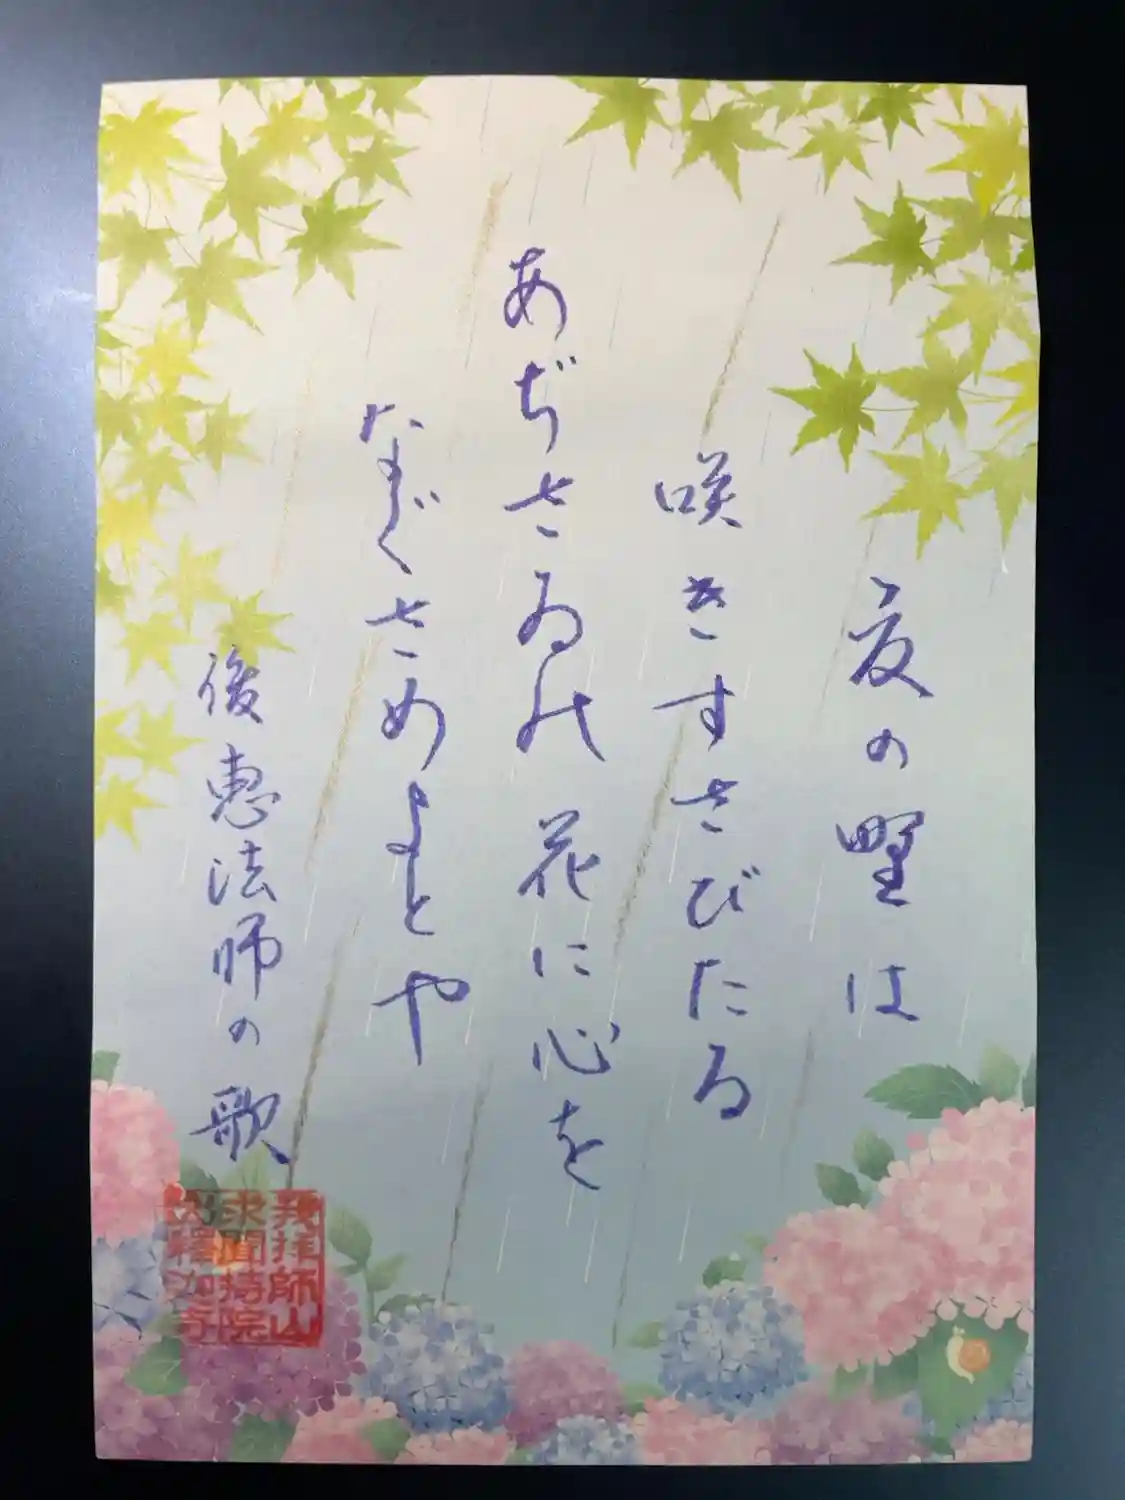 夏の野は
咲きすさびたる
あぢさゐの花に心を
なぐさめよとや
俊恵法師の歌
我拝師山
求聞持院
出釋迦寺